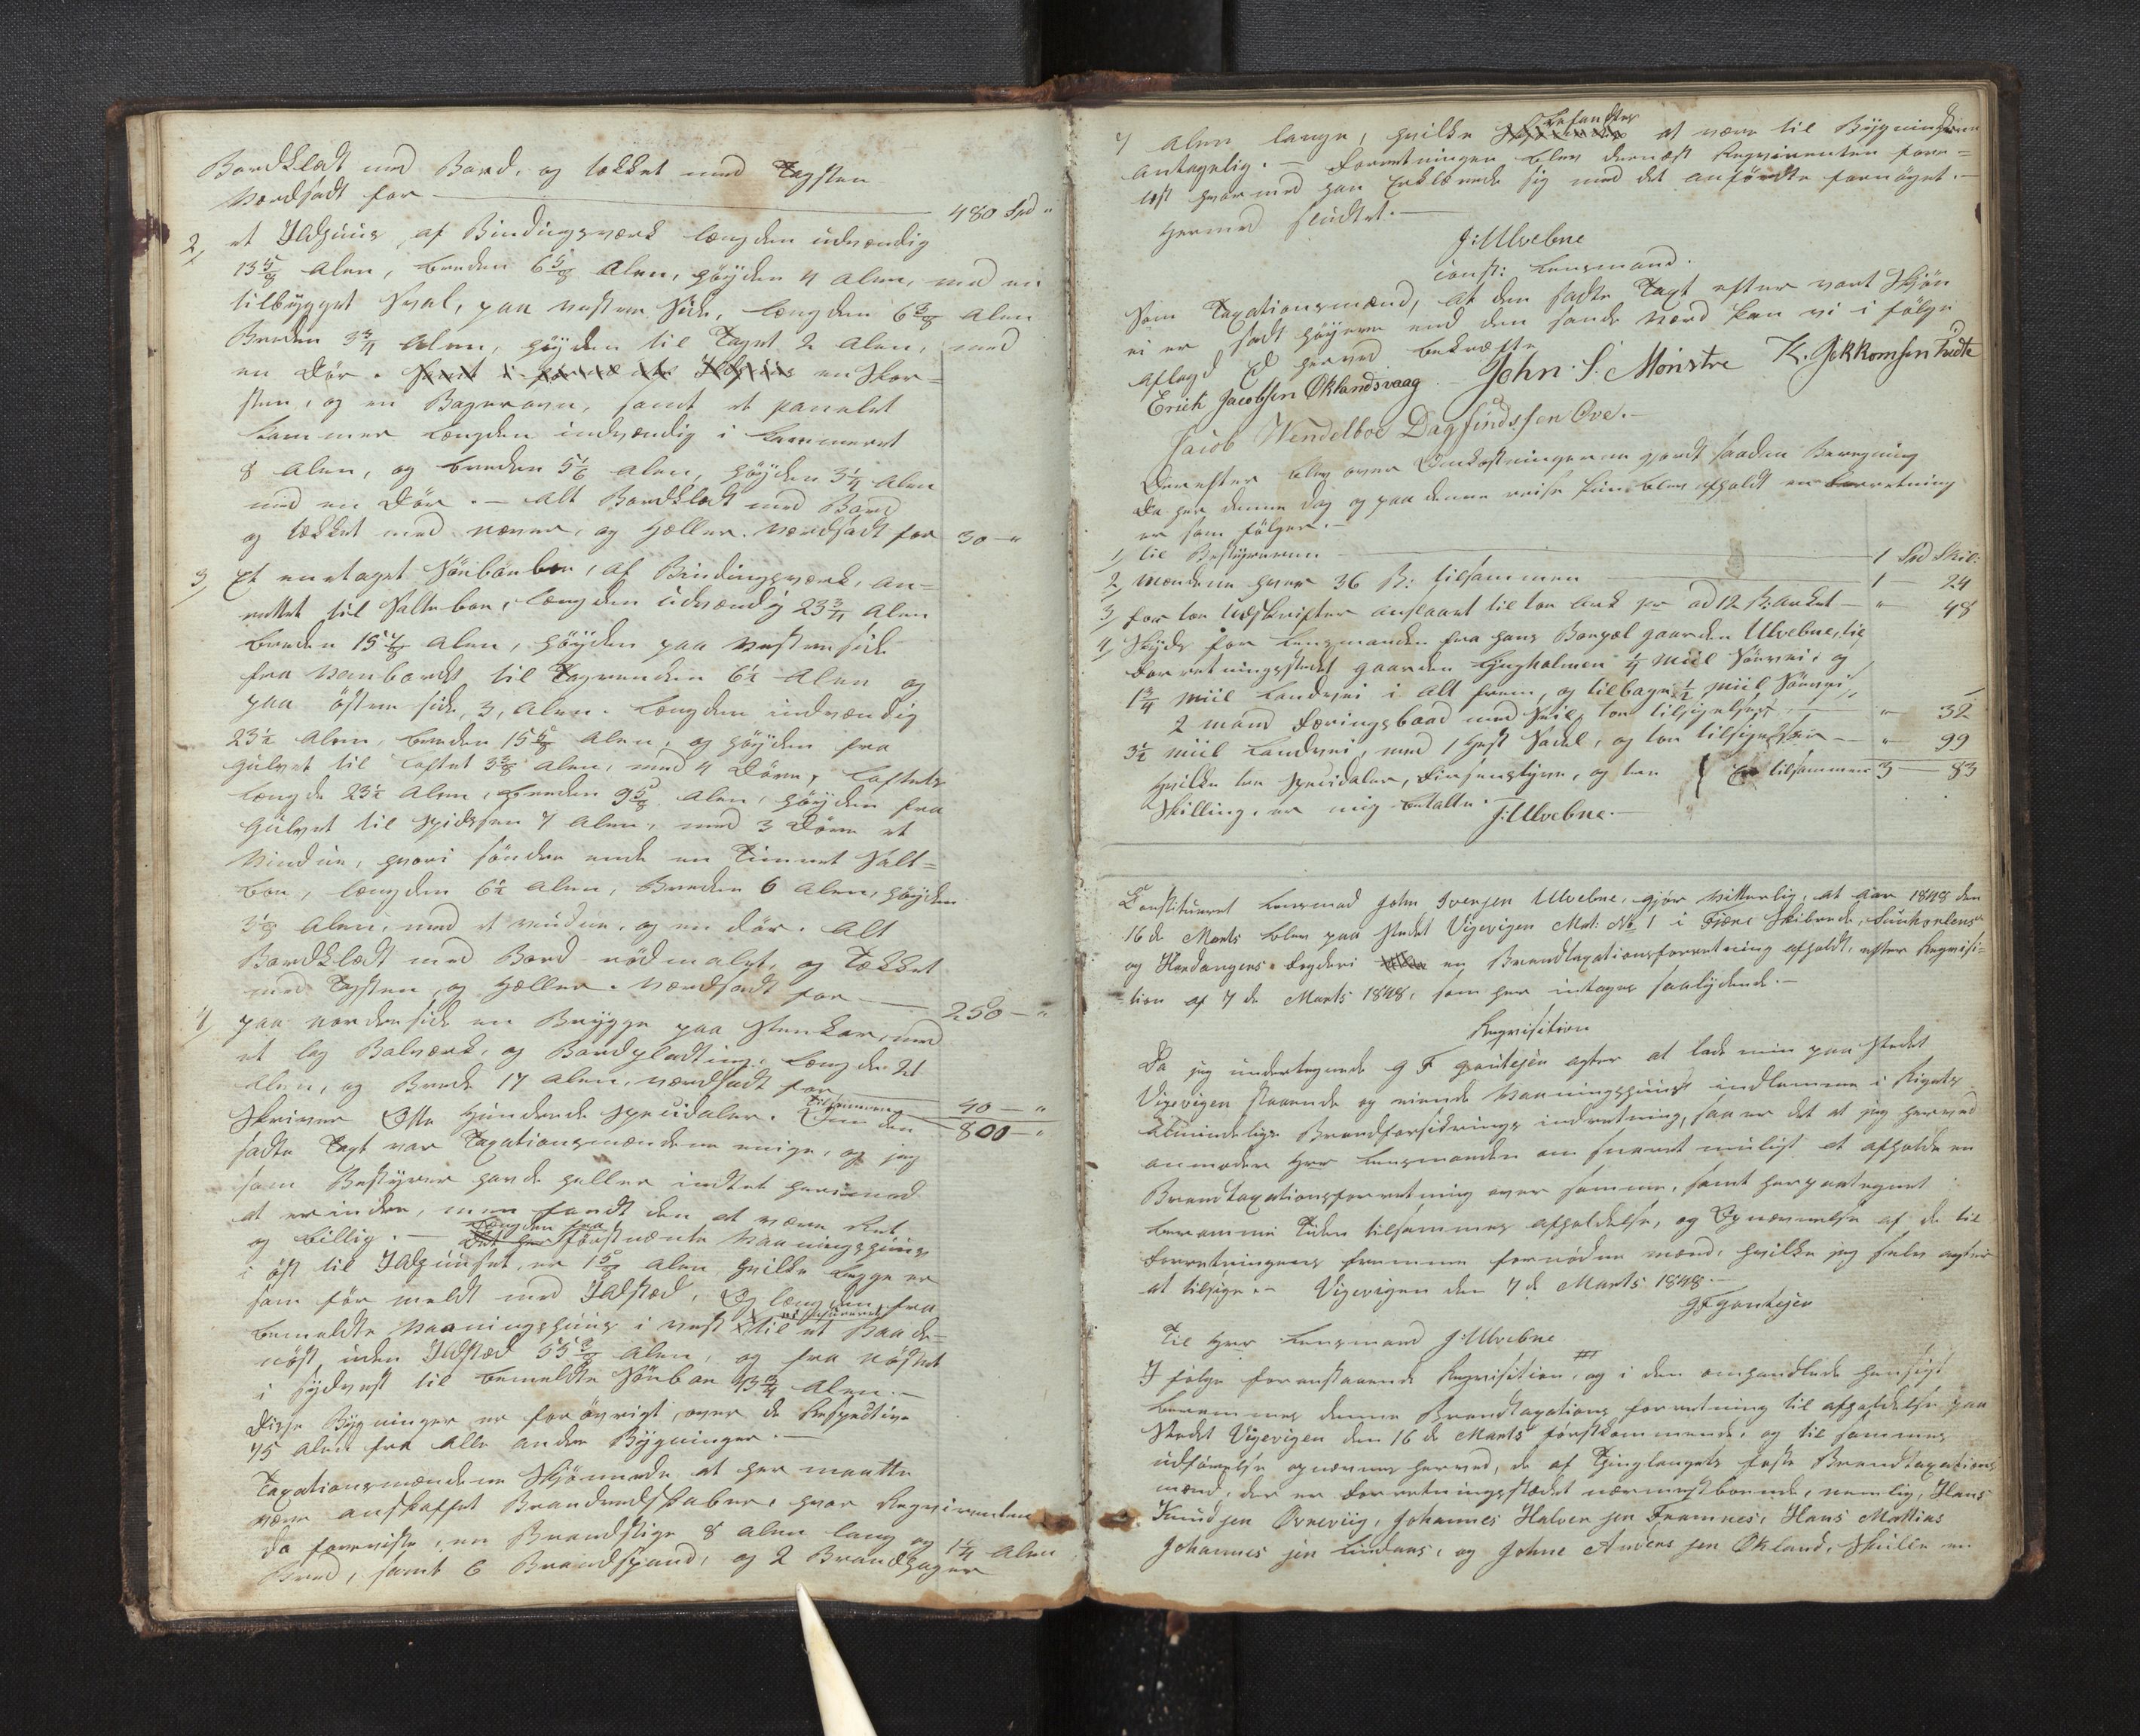 Bordklædt med Bord, og tækket med Tagsten
Værdsadt for — 480 Spd "
2, et Ildhuus af Bindingsværk længden udvændig
13 5/8 Alen, breden 6 5/8 Alen, höyden 4 Alen, med en
tilbygget Sval, paa vestre Side, længden 6 3/8 Alen
Breden 3 3/4 Alen, höyden til Taget 2 Alen, med
en Dör. en Skor=
sten, og en Bagerovn, samt et panelet
Kammer længden indvændig i Kammeret
8 Alen, og breden 5 1/2 Alen, höyden 3 1/4 Alen
med en Dör. — Alt Bordklædt med Bord
og tækket med næver, og Heller. Værdsadt for 30 — "
3, Et enetaget Söebonboe, af Bindingsværk, an=
rettet til Salteboe, længden udvændig 23 3/4 Alen
breden 15 7/8 Alen, höyden paa vestre side
fra Vanbordet til Tagrenden 6 1/2 Alen og
paa östre side, 3, Alen. Længden indvændig
23 1/2 Alen, breden 15 5/8 Alen, og höyden fra
Gulvet til Loftet 3 3/8 Alen, med 4 Döre, Loftets
længde 23 1/2 Alen, breden 9 5/8 Alen, höyden fra
Gulvet til Spidsen 7 Alen, med 3 Döre et
Vindue, hvori söndre ende en Timret Salt=
boe, længden 6 1/2 Alen, Breden 6 Alen, höyden
3 1/8 Alen, med et vindue, og en dör. Alt
Bordklædt med Bord rödmalet, og Tækket
med Tagsten, og Heller. Værdsadt for — 250 — "
4, paa nordre side en Brygge paa Stenkar, med
et lag Bolværk, og Bordpladting. Længden 21
Alen, og Brede 14 Alen, værdsadt for 40 — "
Skriver Otte Hundrede Speciedaler. Tilsammen Om den 800 — "
sadte Taxt var Taxationsmændene enige, og jeg
som Bestyrer havde heller indtet herimod
at erindre, men fandt den at være Ret
og billig. — Længden fra förstnævnte Vaaningshuus
i öst til Ildhuuset, er 1 5/8 Alen hvilke begge er
som för meldt med Ildsted, Og længden fra
bemeldte Vaaningshuus i vest til et Baade=
nöst, uden Ildsted 55 3/8 Alen, og fra Nöstet
i sydvest til bemeldte Söeboe 43 3/4 Alen. —
Disse Bygninger er forövrigt over de Respective
75 Alen fra Alle andre Bygninger. —
Taxationsmændene Skjönnede at her maatte
være anskaffet Brandredskaber, hvor Reqvirenten
da foreviste, en Brandstige 8 Alen lang og 1 1/4 Alen
Bred, samt 6 Brandspand, og 2 Brandhager
7 Alen lange, hvilke befandtes at være til Bygningerne
antagelig. — Forretningen blev dernæst Reqvirenten fore=
læst hvormed han Erklærede sig med det anförte fornöyet. —
Hermed sluttet. —
J: Ulvebne
const: Lensmand.
Som Taxationsmænd, at den sadte Taxt efter vort Skjön
ei er sadt höyere end den sande Værd kan vi i fölge
aflagd Ed herved bekræfte
Erich Jacobsen Öklandsvaag. — John S. Mönstre K. Jokkomsen Tvedte
Jacob Wendelboe Dagfindssen Ove. —
Derefter blev over Omkostningerne gjordt saadan Beregning
Da her denne Dag og paa denne reise kun blev afholdt en Forretning
er som fölger. —
1, Til Bestyreren — 1 Spd Skil:
2, Mændene hver 36 ß: tilsammen — 1 — 24
3, for toe Udskrifter anslaaet til toe Ark pr ad 12 ß: arket — " 48
4, Skyds for Lensmanden fra hans Bopæl gaarden Ulvebne, til
Forretningsstedet gaarden Lyngholmen 1/4 Miil Söevei, og
1 3/4 Miil Landvei i Alt frem, og tilbage 1/2 Miil Söevei
2 Mand Færingsbaad med Seil, toe tilsigelser — " 32
3 1/2 Miil Landvei, med 1 Hest Sadel, og toe tilsigelser — " 99
Hvilke tre Speciedaler, Firsenstyve, og tre Er tilsammen 3 — 83
Skilling, er mig betalte.
J: Ulvebne. —
Constitueret Lensmad John Iversen Ulvebne, gjör vitterlig, at Aar 1848 den
16 de Marts blev paa Stedet Vigevigen Mat: No 1 i Fjære Skibrede, Sunhorlens
og Hardangers Fogderi en Brandtaxationsforretning afholdt, efter Reqvisi=
tion af 7 de Marts 1848, som her intages saalydende. —
Reqvisition
Da jeg undertegnede G F Gontejen agter at lade min paa Stedet
Vigevigen staaende og eiende Vaaningshuus indlemme i Rigets
Almindelige Brandforsikrings indretning, saa er det at jeg herved
anmoder Herr Lensmanden om snarest muligt at afholde en
Brandtaxationsforretning over samme, samt herpaategnet
beramme Tiden til sammes afholdelse, og Opnævnelse af de til
Forretningens fremme fornödne mænd, hvilke jeg selv agter
at tilsige. — Vigevigen den 7 de Marts 1848. —
G F Gontejen
Til Herr Lensmand J: Ulvebne
I fölge foranstaaende Reqvisition, og i den omhandlede hensigt
berammes denne Brandtaxations forretning til afholdelse paa
Stedet Vigevigen den 16 de Marts förstkommende, og til sammes
udförelse opnævnes herved, de af Thinglauget faste Brandtaxations
mænd, der er Forretningsstedet nærmest boende, nemlig, Hans
Knudsen Övreviig, Johannes Halversen Framnes, Hans Mathias
Johannesen Lindaas, og Johne Andersen Ökland. Skulde en